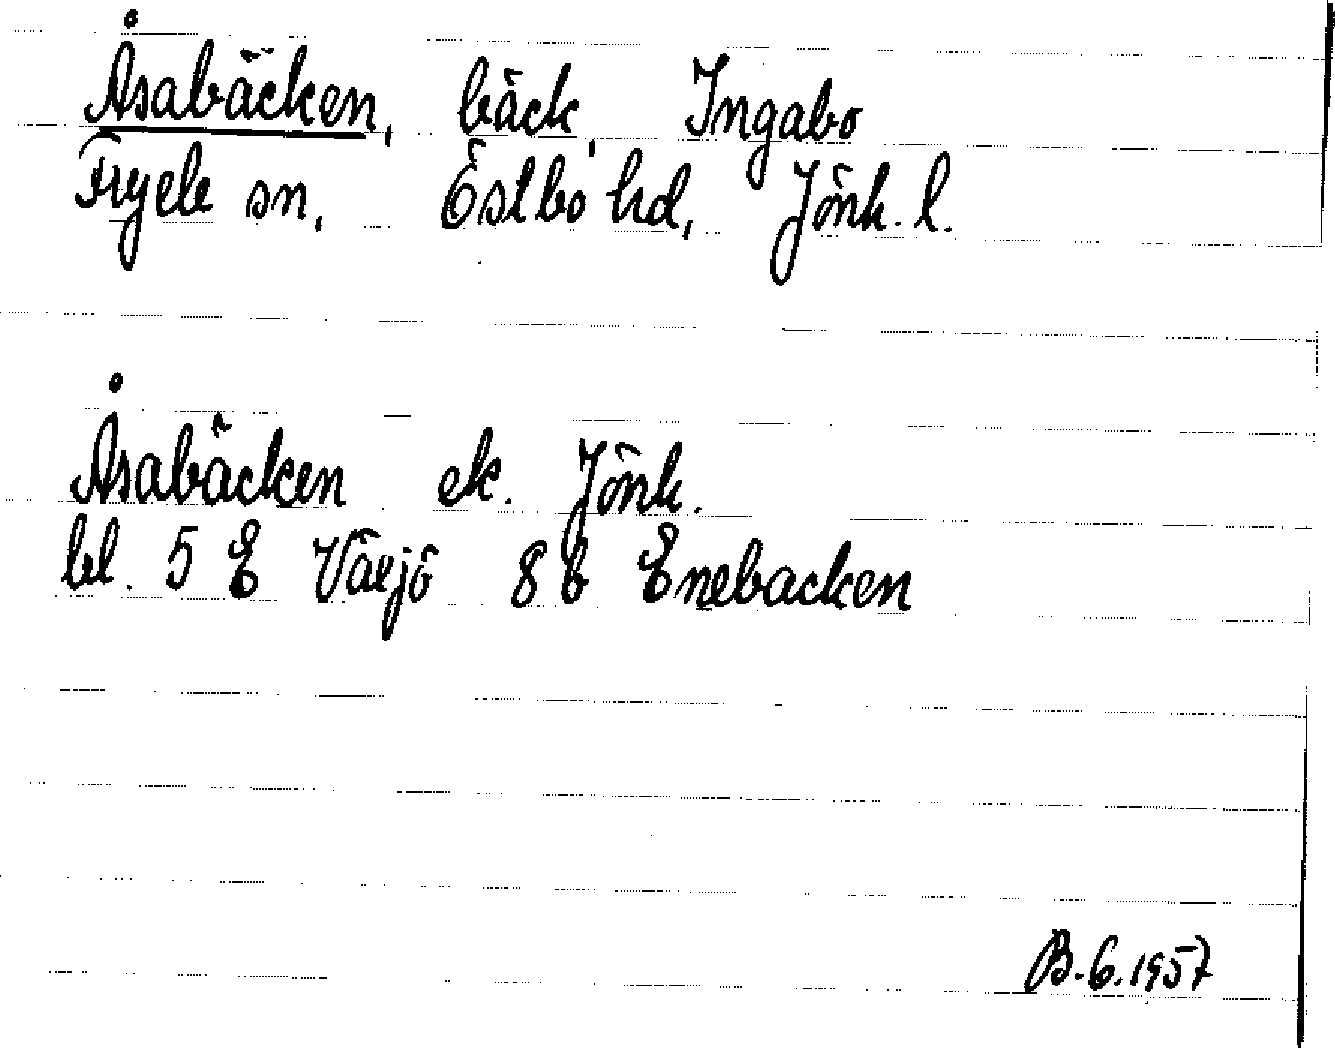 Åsabäcken, bäck, Ingabo
Fryele sn, Östbo hd, Jönk. l.
Åsabäcken ek. Jönk.
bl. 5 E Växjö 8 b Enebacken
B.G.1957